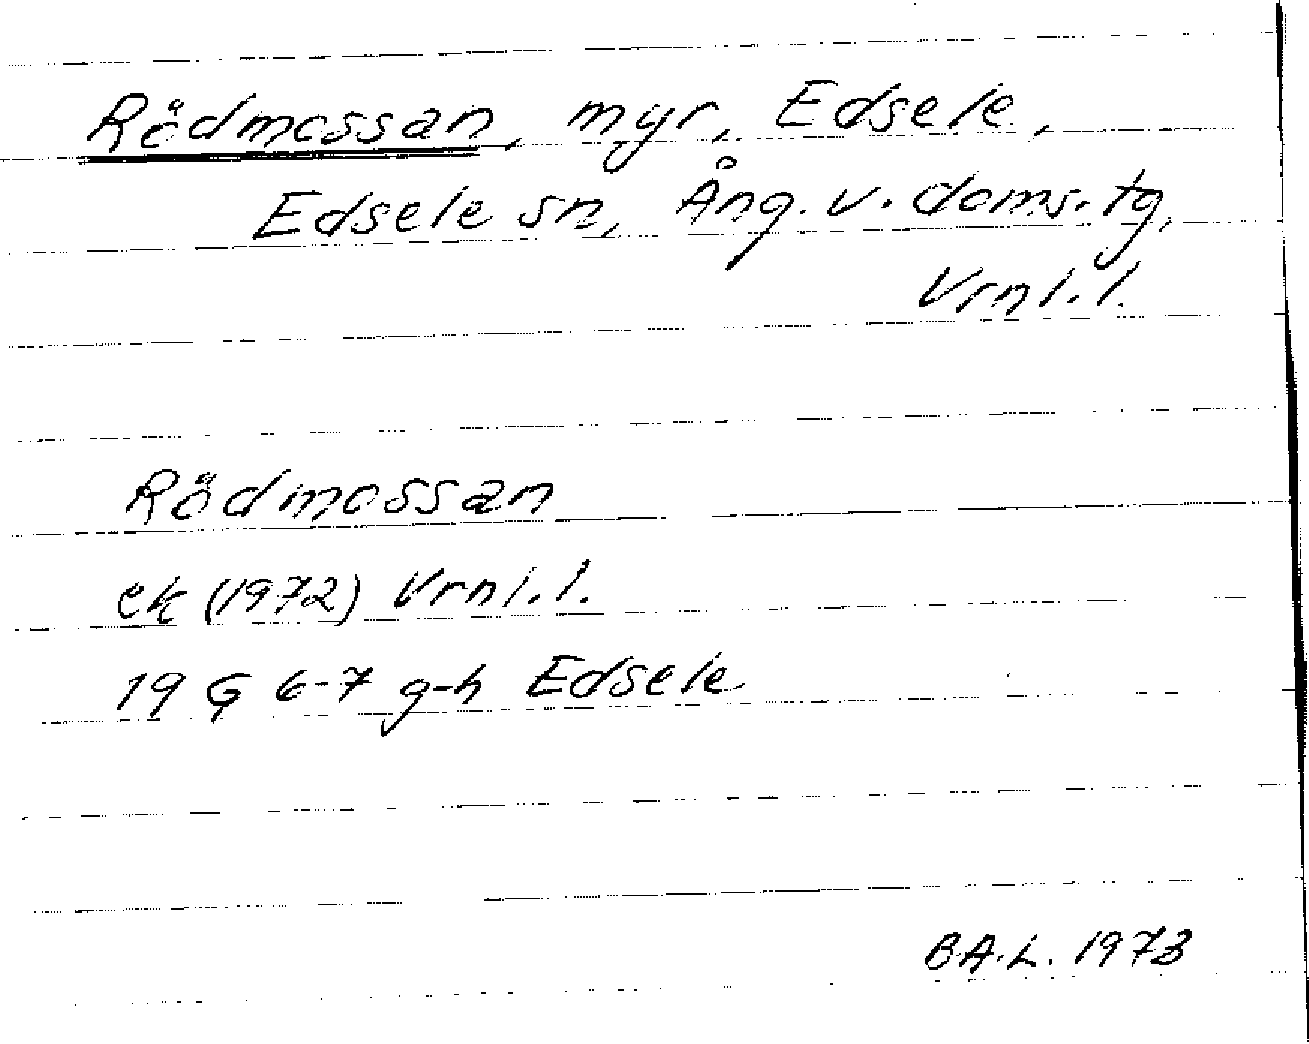 Rödmossan, myr, Edsele,
Edsele sn, Ång. v. doms. tg,
Vrnl. l.
Rödmossan
ek (1972) Vrnl. l.
19 G 6-7 g-h Edsele
B.A.L. 1973